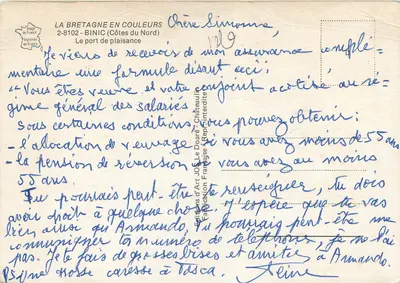 LA BRETAGNE EN COULEURS
2-8102 - BINIC (Côtes du Nord)
Le port de plaisance
Chère Simonne,
Je viens de recevoir de mon assurance complé-
mentaire une formule disant ceci :
"Vous êtes veuve et votre conjoint a cotisé au ré-
gime général des salariés
Sous certaines conditions vous pouvez obtenir :
- l'allocation de veuvage, si vous avez moins de 55 ans
- la pension de réversion si vous avez au moins
55 ans.
Tu pourrais peut-être te renseigner, tu dois
avoir droit à quelque chose. J'espère que tu vas
bien ainsi qu'Armando. Tu pourrais peut-être me
communiquer ton numéro de téléphone, je ne l'ai
pas. Je te fais de grosses bises et amitiés à Armando.
une grosse caresse à Tosca.
d'Art JOS Le Doaré - Châteaulin
Fabrication Française - Reproduction Interdite